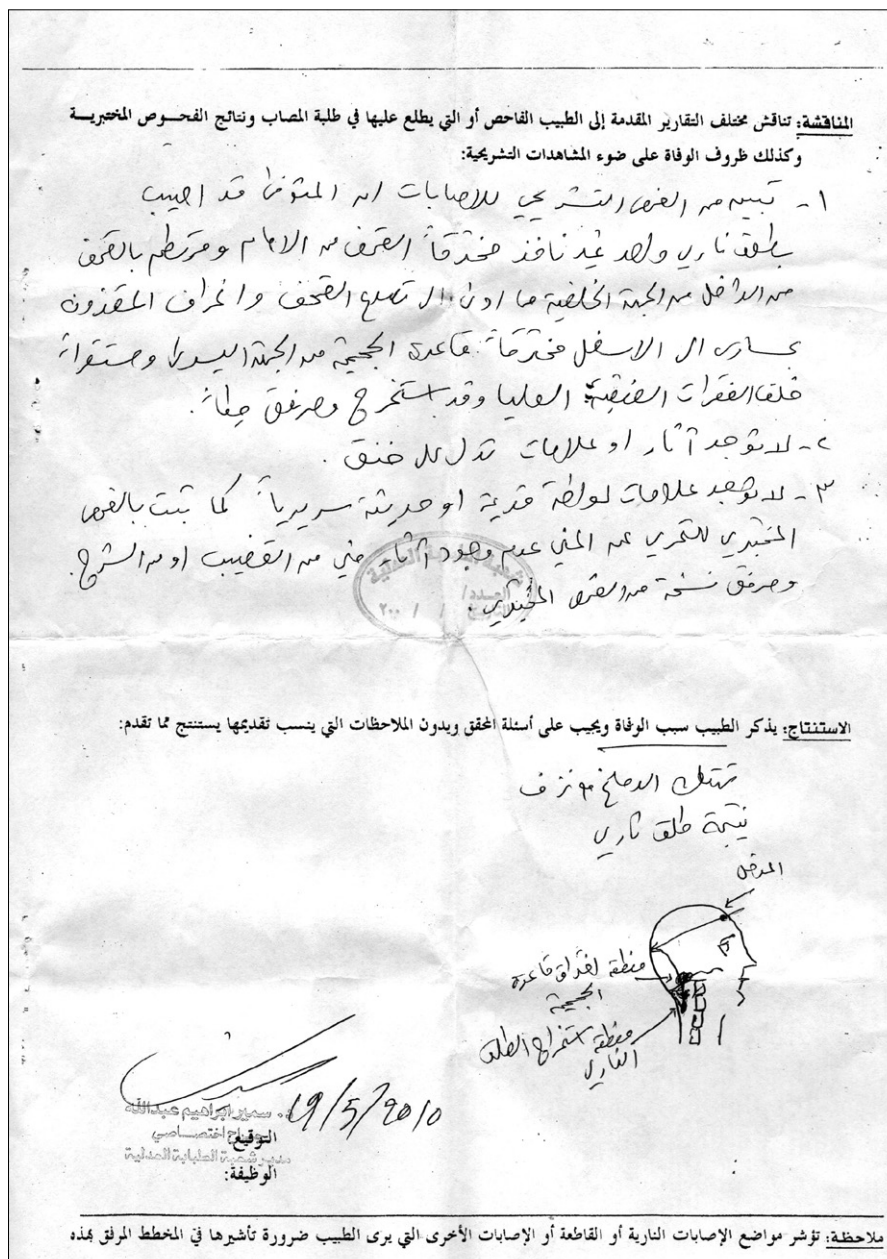 المناقشة: تناقش مختلف التقارير المقدمة إلى الطبيب الفاحص أو التي يطلع عليها في طلبة المصاب ونتائج الفحوص المختبرية
وكذلك ظروف الوفاة على ضوء المشاهدات التشريحية:
١- تبين من الفحص التشريحي للاصابات ان المتوفى قد اصيب
بطلق ناري واحد غير نافذ مخترقاً القحف من الامام ومرتطم بالقحف
من الداخل من الجهة الخلفية مما ادى الى تصدع القحف وانحراف المقذوف
بمساره الى الاسفل مخترقاً قاعدة الجمجمة من الجهة اليسرى ومستقراً
خلف الفقرات العنقية العليا وقد استخرج ومرفق طياً.
٢- لا توجد آثار او علامات تدل على خنق.
٣- لا توجد علامات لواطة قديمة او حديثة سريرياً كما ثبت بالفحص
المختبري للتحري عن المني عدم وجود آثار مني من القضيب او من الشرج
ومرفق نسخة من الفحص المختبري.
العدد /
/ / ٢٠٠
الاستنتاج: يذكر الطبيب سبب الوفاة ويجيب على أسئلة المحقق ويدون الملاحظات التي ينسب تقديمها يستنتج مما تقدم:
تهتك الدماغ ونزف
نتيجة طلق ناري
المدخل
منطقة اختراق قاعدة
الجمجمة
منطقة استخراج الطلق
الناري
19/5/2010
د. سمير ابراهيم عبدالله
جراح اختصاصي
التوقيع:
مدير شعبة الطبابة العدلية
الوظيفة:
ملاحظة: تؤشر مواضع الإصابات النارية أو القاطعة أو الإصابات الأخرى التي يرى الطبيب ضرورة تأشيرها في المخطط المرفق بهذه